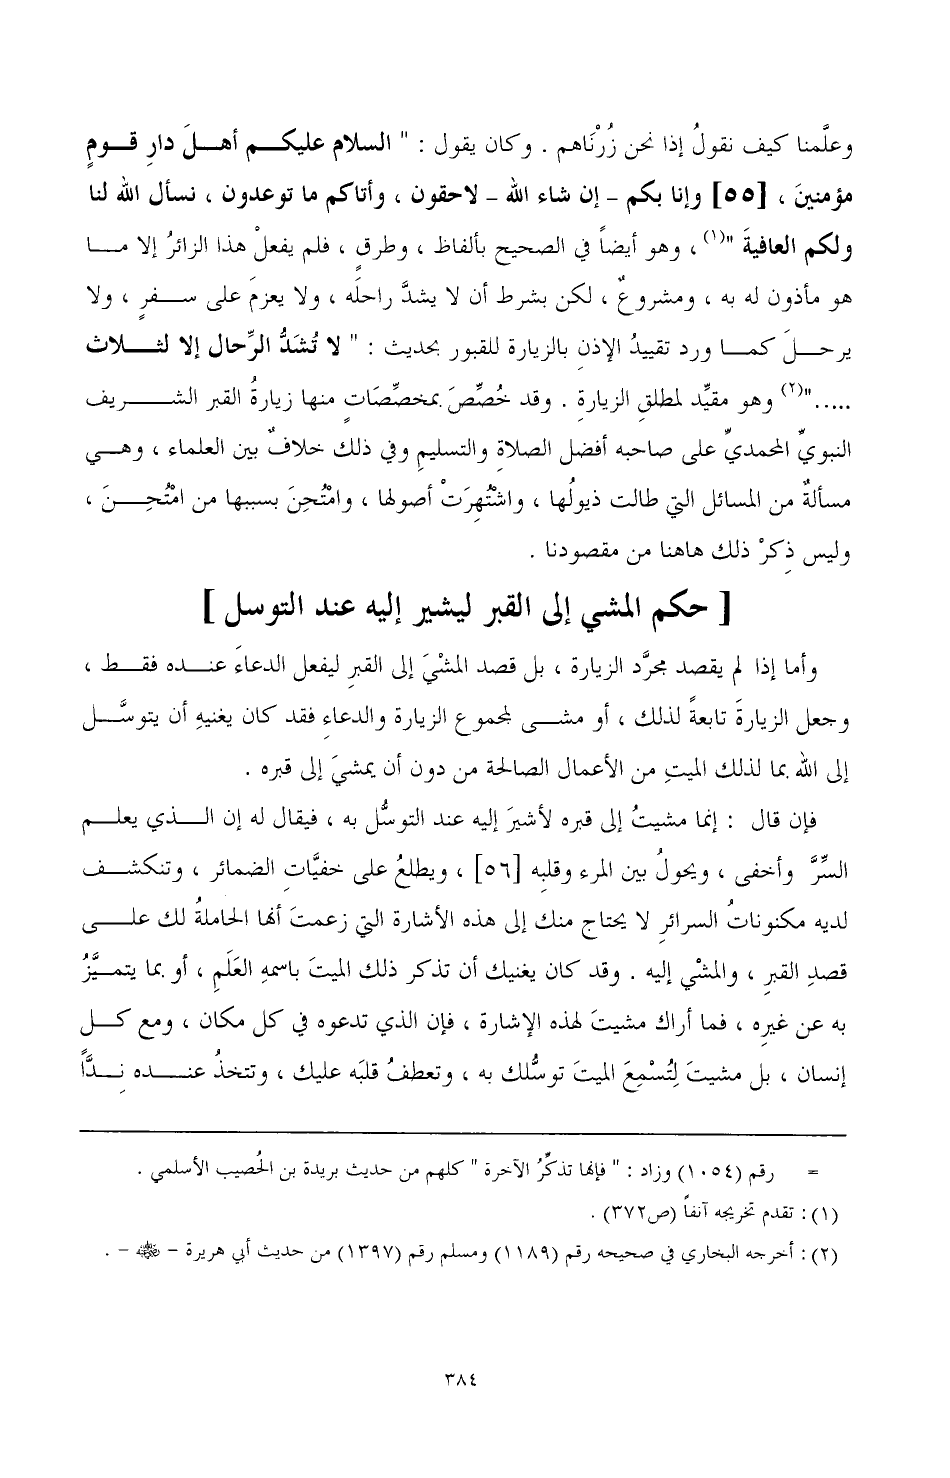 وعلَّمنا كيف نقولُ إذا نحن زُرْنَاهم . وكان يقول : " السلام عليكم أهلَ دارِ قومٍ
مؤمنينَ ، [٥٥] وإنا بكم – إن شاء الله – لاحقون ، وأتاكم ما توعدون ، نسأل الله لنا
ولكم العافيةَ "(١) ، وهو أيضاً في الصحيح بألفاظ ، وطرقٍ ، فلم يفعلْ هذا الزائرُ إلا ما
هو مأذون له به ، ومشروعٌ ، لكن بشرط أن لا يشدَّ راحلَه ، ولا يعزمَ على سفرٍ ، ولا
يرحلَ كما ورد تقييدُ الإذنِ بالزيارة للقبور بحديث : " لا تُشَدُّ الرِّحال إلا لثلاث
....."(٢) وهو مقيِّد لمطلقِ الزيارةِ . وقد خُصِّصَ بمخصِّصَاتٍ منها زيارةُ القبر الشريف
النبويِّ المحمديِّ على صاحبه أفضل الصلاةِ والتسليمِ وفي ذلك خلافٌ بين العلماء ، وهي
مسألةٌ من المسائل التي طالت ذيولُها ، واشْتُهِرَتْ أصولها ، وامْتُحِنَ بسببها من امْتُحِنَ ،
وليس ذِكرْ ذلك هاهنا من مقصودنا .
[ حكم المشي إلى القبر ليشير إليه عند التوسل ]
وأما إذا لم يقصد مجرَّد الزيارة ، بل قصد المشْيَ إلى القبرِ ليفعل الدعاءَ عنده فقط ،
وجعل الزيارةَ تابعةً لذلك ، أو مشى لمجموع الزيارة والدعاءِ فقد كان يغنيهِ أن يتوسَّل
إلى الله بما لذلك الميتِ من الأعمال الصالحة من دون أن يمشيَ إلى قبره .
فإن قال : إنما مشيتُ إلى قبره لأشيرَ إليه عند التوسُّل به ، فيقال له إن الذي يعلم
السِّرَّ وأخفى ، ويحولُ بين المرء وقلبِه [٥٦] ، ويطلعُ على خفيَّاتِ الضمائر ، وتنكشف
لديه مكنوناتُ السرائرِ لا يحتاج منك إلى هذه الأشارة التي زعمتَ أنها الحاملةُ لك على
قصدِ القبرِ ، والمشْي إليه . وقد كان يغنيك أن تذكر ذلك الميتَ باسمهِ العَلَمِ ، أو بما يتميَّزُ
به عن غيرِه ، فما أراك مشيتَ لهذه الإشارة ، فإن الذي تدعوه في كل مكان ، ومع كل
إنسان ، بل مشيتَ لِتُسْمِعَ الميتَ توسُّلك به ، وتعطفُ قلبَه عليك ، وتتخذُ عنده نِدًّا
= رقم (١٠٥٤) وزاد : " فإنها تذكِّرُ الآخرة " كلهم من حديث بريدة بن الحُصيب الأسلمي .
(١): تقدم تخريجه آنفاً (ص٣٧٢) .
(٢): أخرجه البخاري في صحيحه رقم (١١٨٩) ومسلم رقم (١٣٩٧) من حديث أبي هريرة – ﷺ – .
٣٨٤